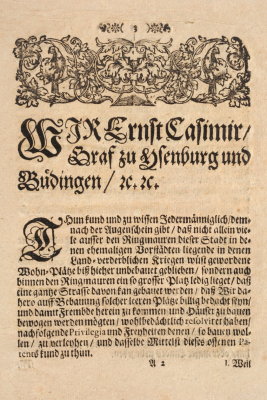 3
WIR Ernst Casimir/
Graf zu Ysenburg und
Büdingen/ ꝛc. ꝛc.
THun kund und zu wissen Jedermänniglich/dem-
nach der Augenschein gibt / daß nicht allein vie-
le ausser den Ringmauren dieser Stadt in de-
nen ehemaligen Vorstädten liegende in denen
Land-verderblichen Kriegen wüst gewordene
Wohn-Plätze biß hieher unbebauet geblieben / sondern auch
binnen den Ringmauren ein so grosser Platz ledig lieget / daß
eine gantze Strasse davon kan gebauet werden / daß Wir da-
hero auff Bebauung solcher leeren Plätze billig bedacht seyn/
und damit Frembde herein zu kommen und Häuser zu bauen
bewogen werden möchten / wohlbedächtlich resolviret haben/
nachfolgende Privilegia und Freyheiten denen / so bauen wol-
len / zu verleyhen / und dasselbe Mittelst dieses offenen Pa-
tents kund zu thun.
A 2
1. Weil